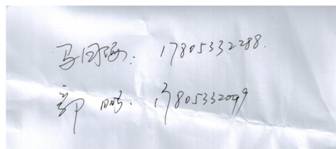 马国强: 17805332288.
郭鹏: 17805332099